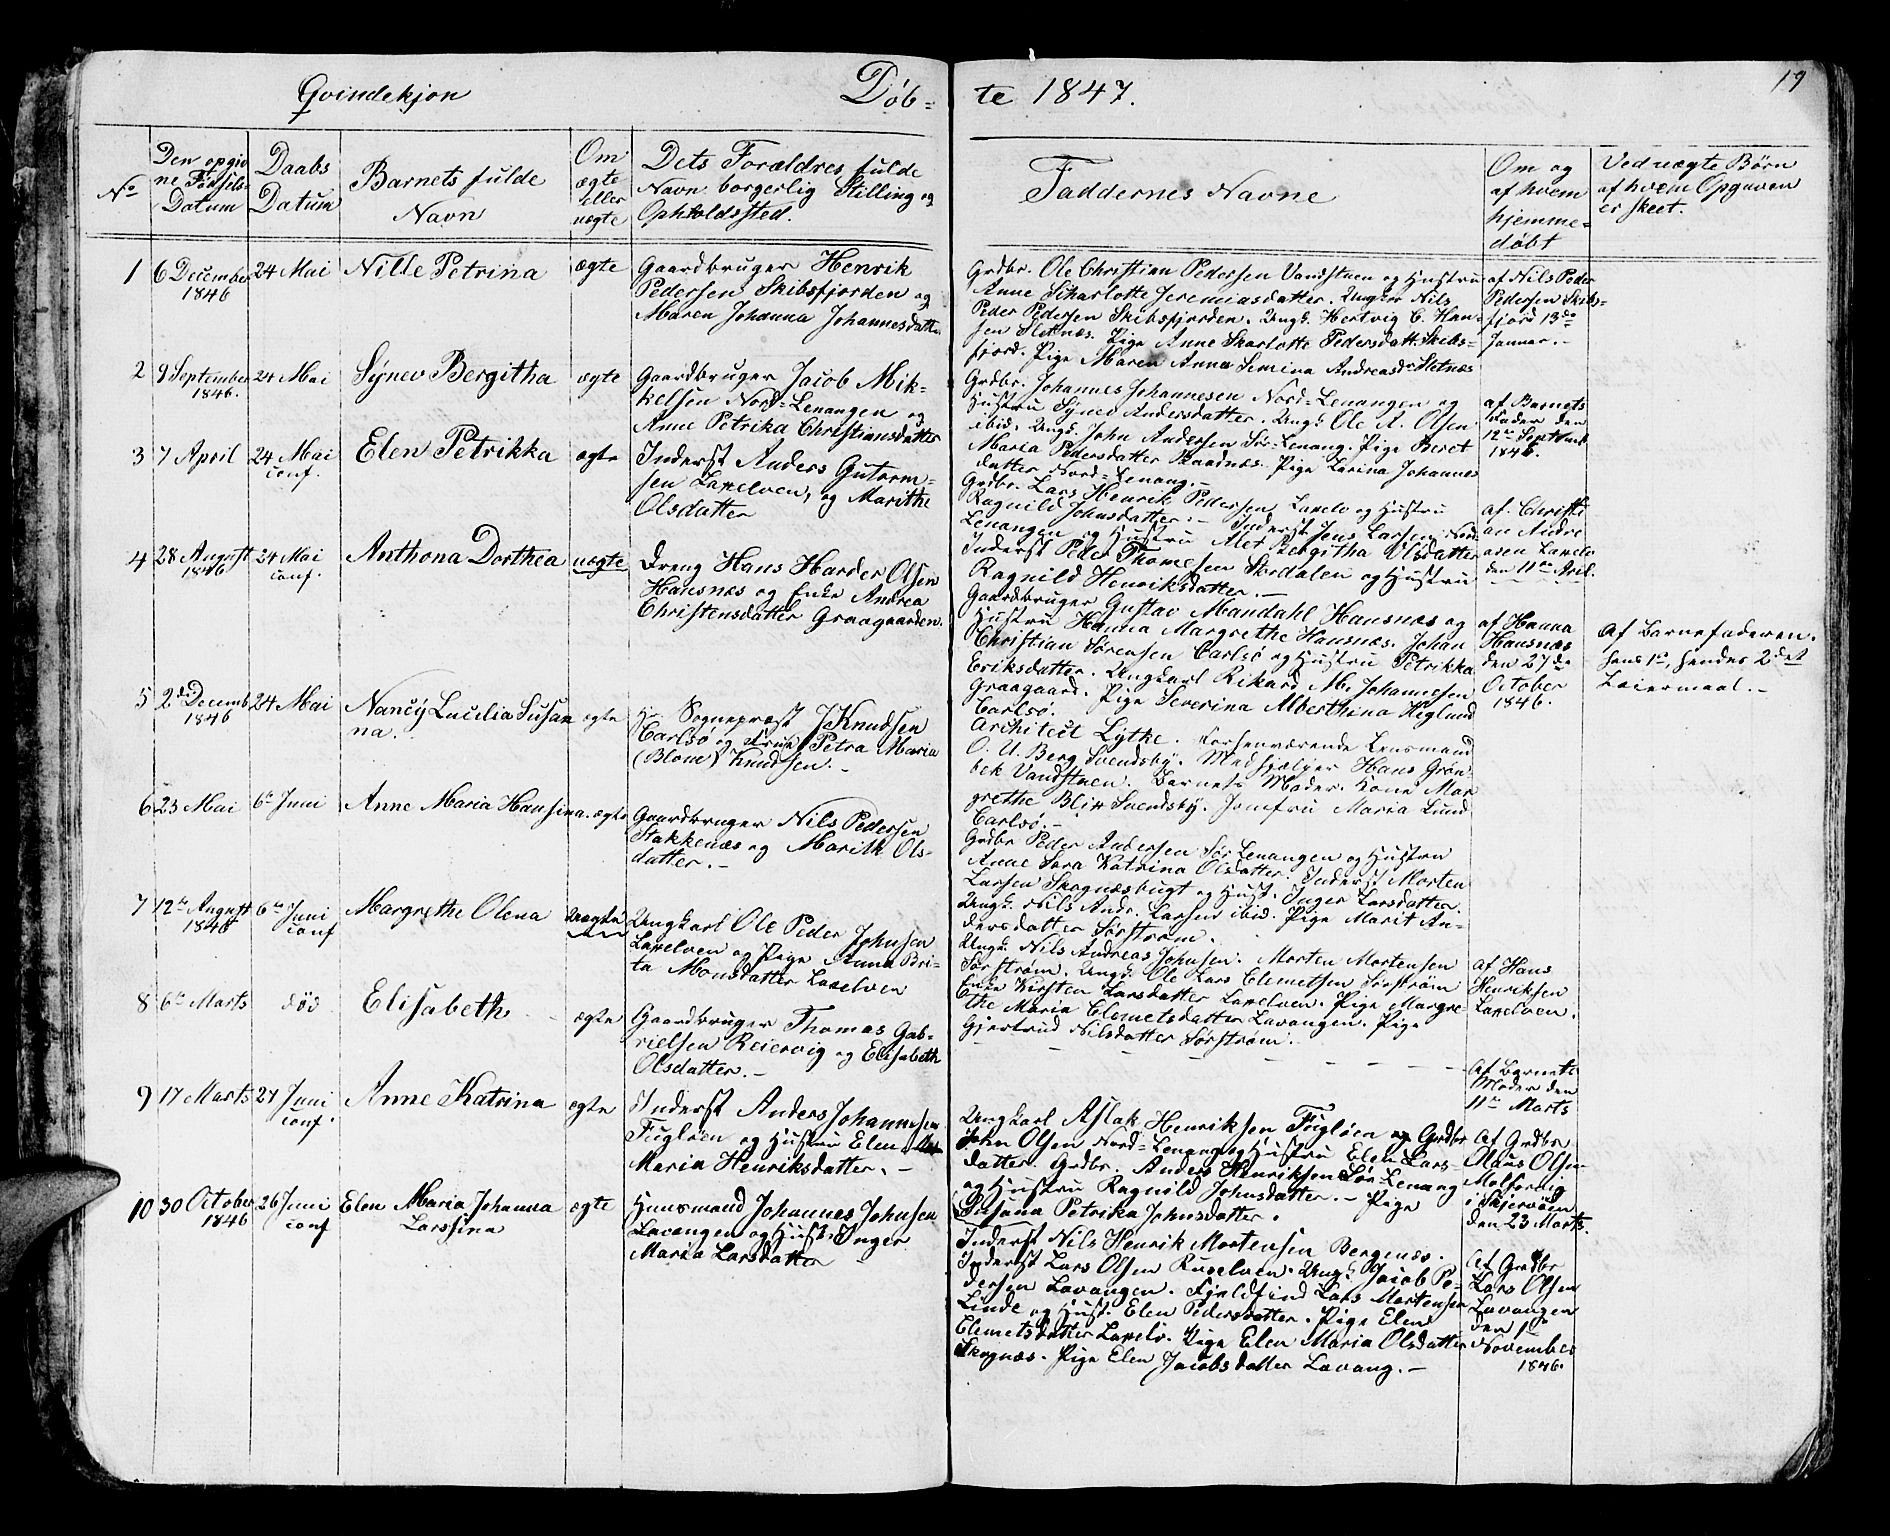 Qvindekjøn
Døb-
te 1847.
19
No
Den opgiv
ne Fødsels-
Datum
Daabs
Datum
Barnets fulde
Navn
Om
ægte
eller
uægte
Dets Forældres fulde
Navn borgerlig Stilling og
Opholdssted.
Faddernes Navne
Om og
af hvem
hjemme-
døbt
Ved uægte Børn
af hvem Opgaven
er skeet.
1
6 December
1846
24 Mai
Nille Petrina
ægte
Gaardbruger Henrik
Pedersen Skibsfjorden og
Maren Johanna Johannesdatter
Grdbr. Ole Christian Pedersen Vandstuen og Hustru
Anne Scharlotte Jeremiasdatter. Ungkar Nils
Peder Pedersen Skibsfjorden. Ungk. Hertvig C. Han-
sen Sletnæs. Pige Anne Skarlotte Pedersdatt. Skibs-
fjord. Pige Maren Anna Semina Andreasdr Sletnæs
af Nils Peder
Pedersen Skibs-
fjord 13de
Januar.-
2
9 September
1846.
24 Mai
Synev Bergitha
ægte
Gaardbruger Jacob Mik-
kelsen Nord-Lenangen og
Anne Petrika Christiansdatter
Grdbr. Johannes Johannesen Nord-Lenangen og
Hustru Synev Andersdatter. Ungk. Ole A. Olsen
ibid. Ungk. John Andersen Sør-Lenang. Pige Beret
Maria Pedersdatter. Pige Larina Johannes
datter Nord-Lenang.-
af Barnets
Fader den
12te Septemb
1846.
3
7 April
24 Mai
conf.
Elen Petrikka
ægte
Inderst Anders Gutorm-
sen Laxelven, og Marithe
Olsdatter
Grdbr. Lars Henrik Pedersen Laxelv og Hustru
Ragnild Johnsdatter.- Inderst Jens Larsen
Lenangen og Hustru Alet Bergitha Olsdatter
Inderst Peder Thomesen Stordalen og Hustru
Ragnild Henriksdatter.-
af. Christi
an Andre
asen Laxelv
den 11te April.
4
28 August
1846
24 Mai
conf.
Anthona Dorthea
uægte
Dreng Hans Harder Olsen
Hansnæs og Enke Andrea
Christensdatter Graagaarden.
Gaardbruger Gustav Mandahl Hansnæs og
Hustru Hanna Margrethe Hansnæs. Johan
Christian Sørensen Carlsø og Hustru Petrikka
Eriksdatter. Ungkarl Rikard M. Johannesen
Graagaard. Pige Severina Alberthina Heglund
Carlsø.
af Hanna
Hansnæs
den 27de
October
1846.
Af Barnefaderen.
hans 1ste, hendes 2det
Leiermaal.-
5
2de Decemb
1846
24 Mai
Nancy Lucilia Susan
na.
ægte
Hr. Sognepræst J Knudsen
Carlsø og Frue Petra Maria
(Blom) Knudsen.-
Architect Lytke. Forhenværende Lensmand
O. U. Berg Svendsby. Medhjælper Hans Grøn-
bek Vandstuen. Barnets Moder. Kone Mar
grethe Blix Svendsby. Jomfru Maria Lund
Carlsø.-
6
23 Mai
6te Juni
Anne Maria Hansina.
ægte
Gaardbruger Nils Pedersen
Stakkenæs og Marith Ols-
datter.-
Grdbr Peder Andersen Sør Lenangen og Hustru
Anne Sara Katrina Olsdatter. Inderst Morten
Larsen Skognæsbugt og Hust. Inger Larsdatter.
Ungk. Nils Andr. Larsen ibid. Pige Marit An-
dersdatter Sørstrøm.
7
12te August
1846
6te Juni
conf
Margrethe Olena
Uægte
Ungkarl Ole Peder Johnsen
Laxelven og Pige Anna Bri-
ta Monsdatter Laxelven
Ungk. Nils Andreas Johnsen. Morten Mortensen
Sørstrøm. Ungk. Ole Lars Clemetsen Sørstrøm
Enke Kirsten Larsdatter Laxelven. Pige Margre
the Maria Clemetsdatter Lavangen. Pige
Gjertrud Nilsdatter Sørstrøm.
af Hans
Henriksen
Laxelven.
8
6te Marts
død
Elisabeth
ægte
Gaardbruger Thomas Gab-
rielsen Reiervig og Elisabeth
Olsdatter.-
Af Barnets
Moder den
11te Marts
9
17 Marts
27 Juni
conf.
Anne Katrina
ægte
Inderst Anders Johannesen
Fugløen og Hustru Elen
Maria Henriksdatter.-
Ungkarl Aslak Henriksen Fugløen og Grdbr
John Olsen Nord-Lenang og Hustru Elen Lars-
datter. Grdbr. Anders Henriksen Sør-Lenang
og Hustru Ragnild Johnsdatter.- Pige
Susana Petrika Johnsdatter.
Af Grdbr
Olaus Olsen
Molforvig
i Skjervøen
den 23 Marts.
10
30 October
1846
26 Juni
conf
Elen Maria Johanna
Larssina
ægte
Huusmand Johannes Johnsen
Lavangen og Hust. Inger
Maria Larsdatter
Inderst Nils Henrik Mortensen Bergenæs.
Inderst Lars Olsen Russelven. Ungk. Jacob Pe-
dersen Lavangen. Fjeldfind Lars Mortensen
Linde og Hust. Elen Pedersdatter. Pige Elen
Clemetsdatter Laxelv. Pige Elen Maria Olsdatter
Skognæs. Pige Elen Jacobsdatter Lavang.-
Af Grdbr
Lars Olsen
Lavangen
den 1ste
November
1846.